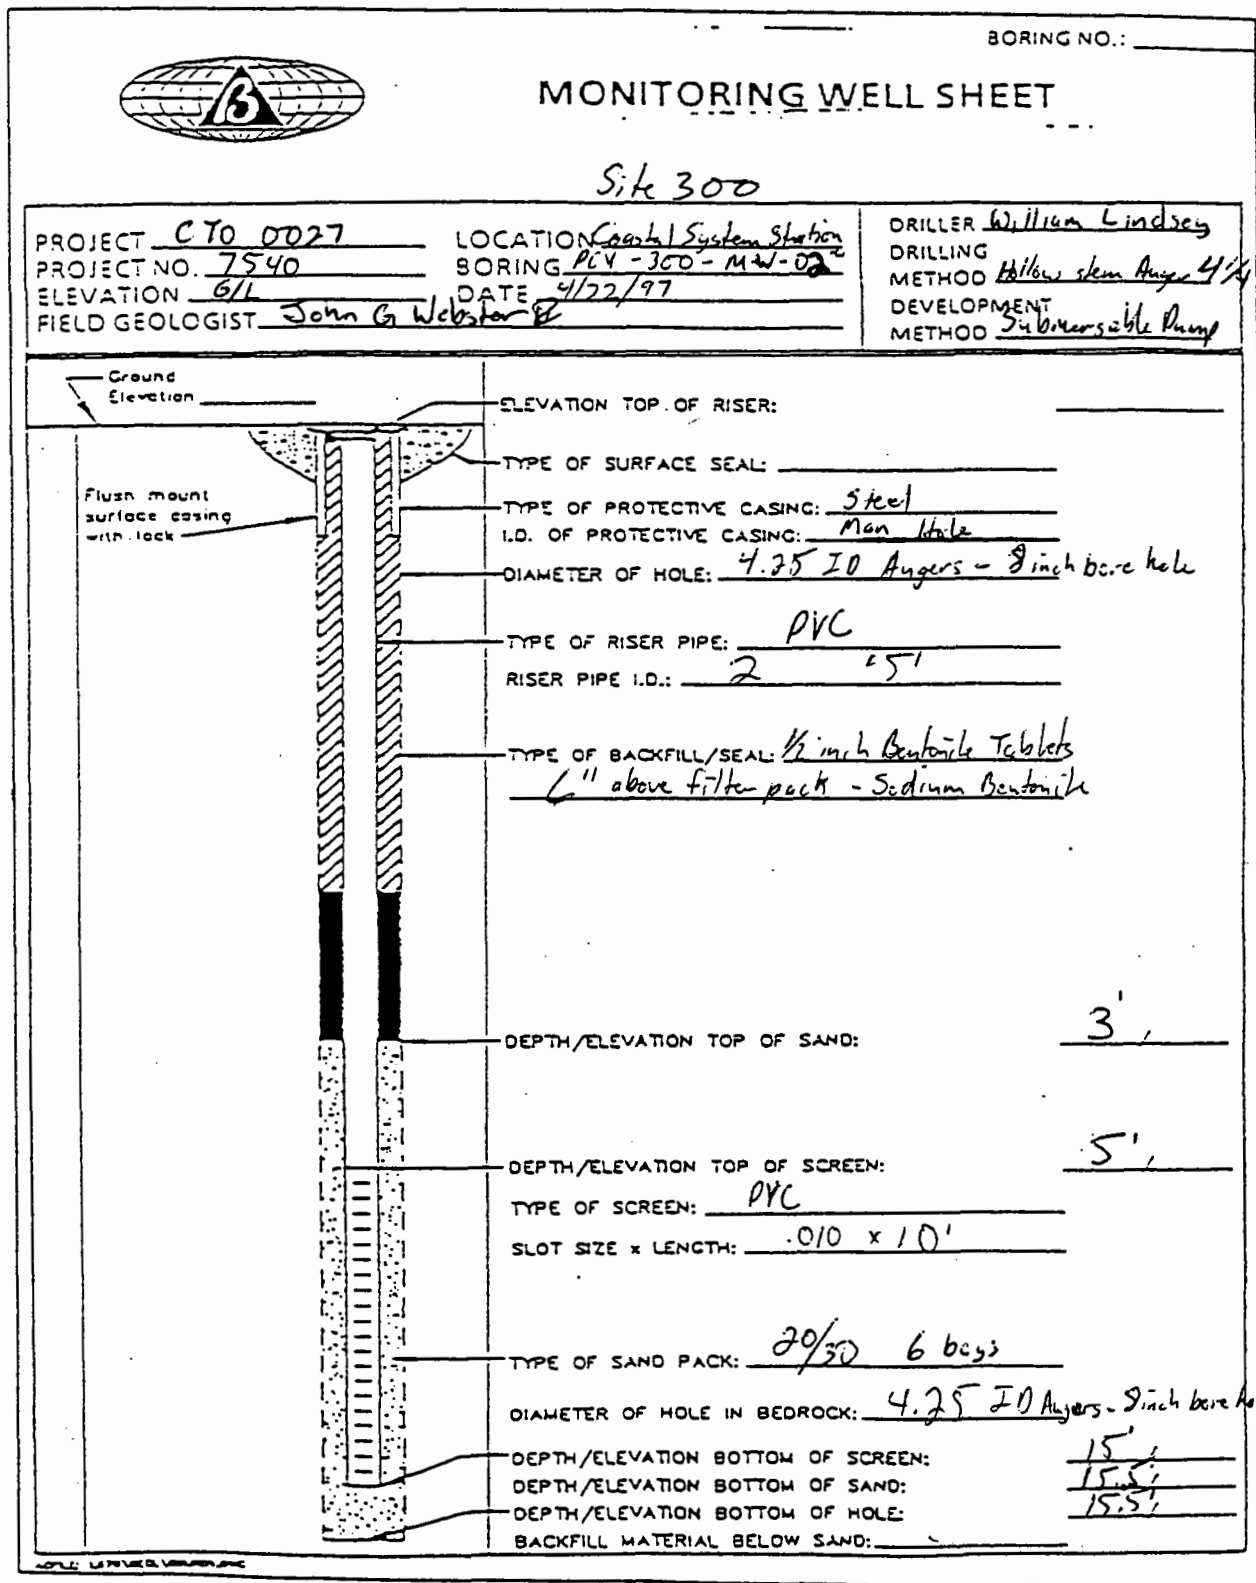 BORING NO.:
B
MONITORING WELL SHEET
Site 300
PROJECT CTO 0027
PROJECT NO. 7540
ELEVATION G/L
FIELD GEOLOGIST John G Webster
LOCATION Coastal System Station
BORING PCY-300-MW-02
DATE 4/22/97
DRILLER William Lindsey
DRILLING
METHOD Hollow stem Auger 4 1/4
DEVELOPMENT
METHOD Submersable Pump
Ground
Elevation
ELEVATION TOP OF RISER:
TYPE OF SURFACE SEAL:
Flush mount
surface casing
with lock
TYPE OF PROTECTIVE CASING: Steel
I.D. OF PROTECTIVE CASING: Man Hole
DIAMETER OF HOLE: 4.25 ID Augers - 8 inch bore hole
TYPE OF RISER PIPE: PVC
RISER PIPE I.D.: 2 5'
TYPE OF BACKFILL/SEAL: 1/2 inch Bentonite Tablets
6" above filter pack - Sodium Bentonite
DEPTH/ELEVATION TOP OF SAND: 3' /
DEPTH/ELEVATION TOP OF SCREEN: 5' /
TYPE OF SCREEN: PVC
SLOT SIZE x LENGTH: .010 x 10'
TYPE OF SAND PACK: 20/30 6 bags
DIAMETER OF HOLE IN BEDROCK: 4.25 ID Augers - 8 inch bore ho
DEPTH/ELEVATION BOTTOM OF SCREEN: 15' /
DEPTH/ELEVATION BOTTOM OF SAND: 15.5' /
DEPTH/ELEVATION BOTTOM OF HOLE: 15.5' /
BACKFILL MATERIAL BELOW SAND: